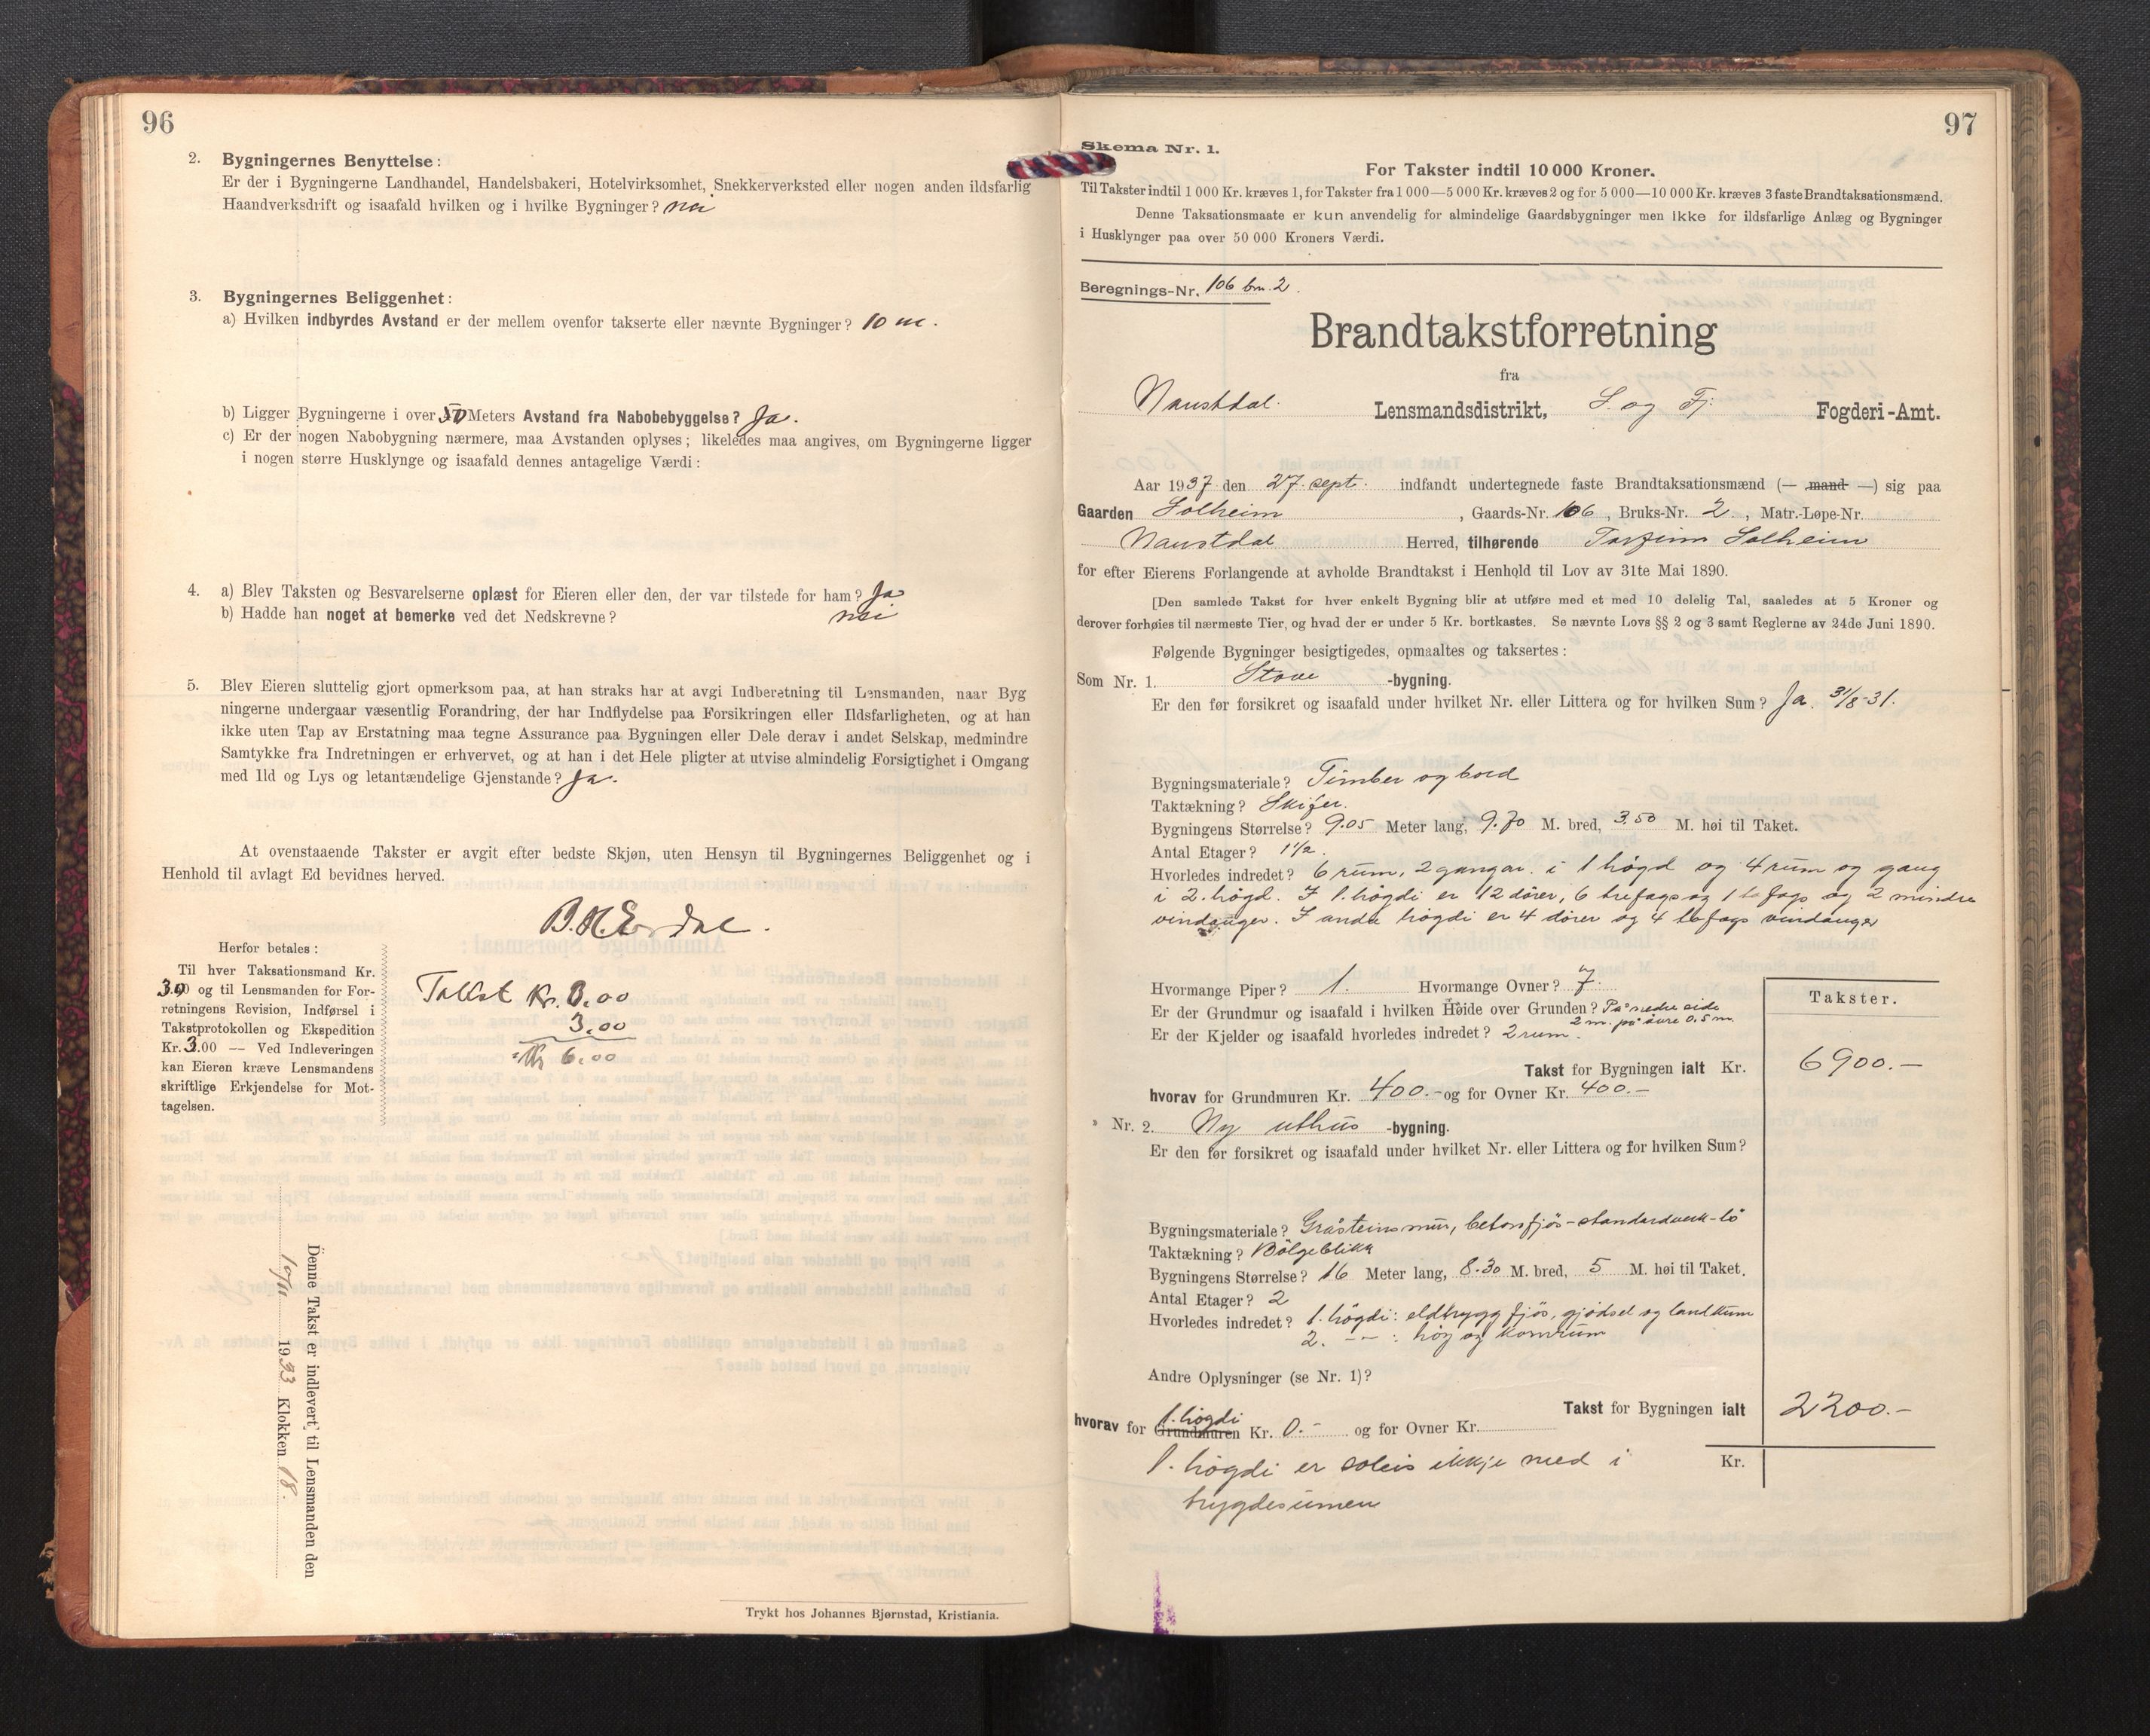 96
2. Bygningernes Benyttelse:
Er der i Bygningerne Landhandel, Handelsbakeri, Hotelvirksomhet, Snekkerverksted eller nogen anden ildsfarlig
Haandverksdrift og isaafald hvilken og i hvilke Bygninger? nei
3. Bygningernes Beliggenhet:
a) Hvilken indbyrdes Avstand er der mellem ovenfor takserte eller nævnte Bygninger? 10 m.
b) Ligger Bygningerne i over 50 Meters Avstand fra Nabobebyggelse? Ja.
c) Er der nogen Nabobygning nærmere, maa Avstanden oplyses; likeledes maa angives, om Bygningerne ligger
i nogen større Husklynge og isaafald dennes antagelige Værdi:
4. a) Blev Taksten og Besvarelserne oplæst for Eieren eller den, der var tilstede for ham? Ja
b) Hadde han noget at bemerke ved det Nedskrevne? nei
5. Blev Eieren sluttelig gjort opmerksom paa, at han straks har at avgi Indberetning til Lensmanden, naar Byg
ningerne undergaar væsentlig Forandring, der har Indflydelse paa Forsikringen eller Ildsfarligheten, og at han
ikke uten Tap av Erstatning maa tegne Assurance paa Bygningen eller Dele derav i andet Selskap, medmindre
Samtykke fra Indretningen er erhvervet, og at han i det Hele pligter at utvise almindelig Forsigtighet i Omgang
med Ild og Lys og letantændelige Gjenstande? Ja.
At ovenstaaende Takster er avgit efter bedste Skjøn, uten Hensyn til Bygningernes Beliggenhet og i
Henhold til avlagt Ed bevidnes herved.
Herfor betales:
Til hver Taksationsmand Kr.
3.00 og til Lensmanden for For-
retningens Revision, Indførsel i
Takstprotokollen og Ekspedition
Kr. 3.00 — Ved Indleveringen
kan Eieren kræve Lensmandens
skriftlige Erkjendelse for Mot-
tagelsen.
Takst Kr. 3.00
3.00
6.00
Denne Takst er indlevert til Lensmanden den
10/11 1933 Klokken 18.
Trykt hos Johannes Bjørnstad, Kristiania.
97
Skema Nr. 1.
For Takster indtil 10 000 Kroner.
Til Takster indtil 1 000 Kr. kræves 1, for Takster fra 1 000—5 000 Kr. kræves 2 og for 5 000—10 000 Kr. kræves 3 faste Brandtaksationsmænd.
Denne Taksationsmaate er kun anvendelig for almindelige Gaardsbygninger men ikke for ildsfarlige Anlæg og Bygninger
i Husklynger paa over 50 000 Kroners Værdi.
Beregnings-Nr. 106 bn. 2.
Brandtakstforretning
fra
Naustdal Lensmandsdistrikt, S. og Fj. Fogderi-Amt.
Aar 1937 den 27. sept. indfandt undertegnede faste Brandtaksationsmænd (— mand —) sig paa
Gaarden Solheim, Gaards-Nr. 106, Bruks-Nr. 2, Matr.-Løpe-Nr.
Naustdal Herred, tilhørende Torfinn Solheim
for efter Eierens Forlangende at avholde Brandtakst i Henhold til Lov av 31te Mai 1890.
[Den samlede Takst for hver enkelt Bygning blir at utføre med et med 10 delelig Tal, saaledes at 5 Kroner og
derover forhøies til nærmeste Tier, og hvad der er under 5 Kr. bortkastes. Se nævnte Lovs §§ 2 og 3 samt Reglerne av 24de Juni 1890.
Følgende Bygninger besigtigedes, opmaaltes og taksertes:
Som Nr. 1. Stove -bygning.
Er den før forsikret og isaafald under hvilket Nr. eller Littera og for hvilken Sum? Ja. 31/8-31.
Bygningsmateriale? Timber og bord
Taktækning? Skifer.
Bygningens Størrelse? 9.05 Meter lang, 9.70 M. bred, 3.50 M. høi til Taket.
Antal Etager? 1 1/2.
Hvorledes indredet? 6 rum, 2 gangar. i 1 høgd og 4 rum og gang
i 2. høgd. I 1. høgdi er 12 dører, 6 trefags og 1 to fags og 2 mindre
vindauger. I andre høgdi er 4 dører og 4 tofags vindauger
Hvormange Piper? 1. Hvormange Ovner? 7.
Er der Grundmur og isaafald i hvilken Høide over Grunden? På nedre side
2 m. på øvre 0.5 m.
Er der Kjelder og isaafald hvorledes indredet? 2 rum.
Takster.
Takst for Bygningen ialt Kr. 6900.—
hvorav for Grundmuren Kr. 400.- og for Ovner Kr. 400.—
» Nr. 2. Ny uthus -bygning.
Er den før forsikret og isaafald under hvilket Nr. eller Littera og for hvilken Sum?
Bygningsmateriale? Gråsteinsmur, betonfjøs-standardverk-lö
Taktækning? Bölgeblikk
Bygningens Størrelse? 16 Meter lang, 8.30 M. bred, 5 M. høi til Taket.
Antal Etager? 2
Hvorledes indredet? 1. högdi: eldtrygg fjös, gjødsel og landkum
2. -- : høy og kornrum
Andre Oplysninger (se Nr. 1)?
Takst for Bygningen ialt 2200.—
1. högdi
hvorav for Grundmuren Kr. 0.- og for Ovner Kr.
1. högdi er soleis ikkje med i Kr.
trygdesumen